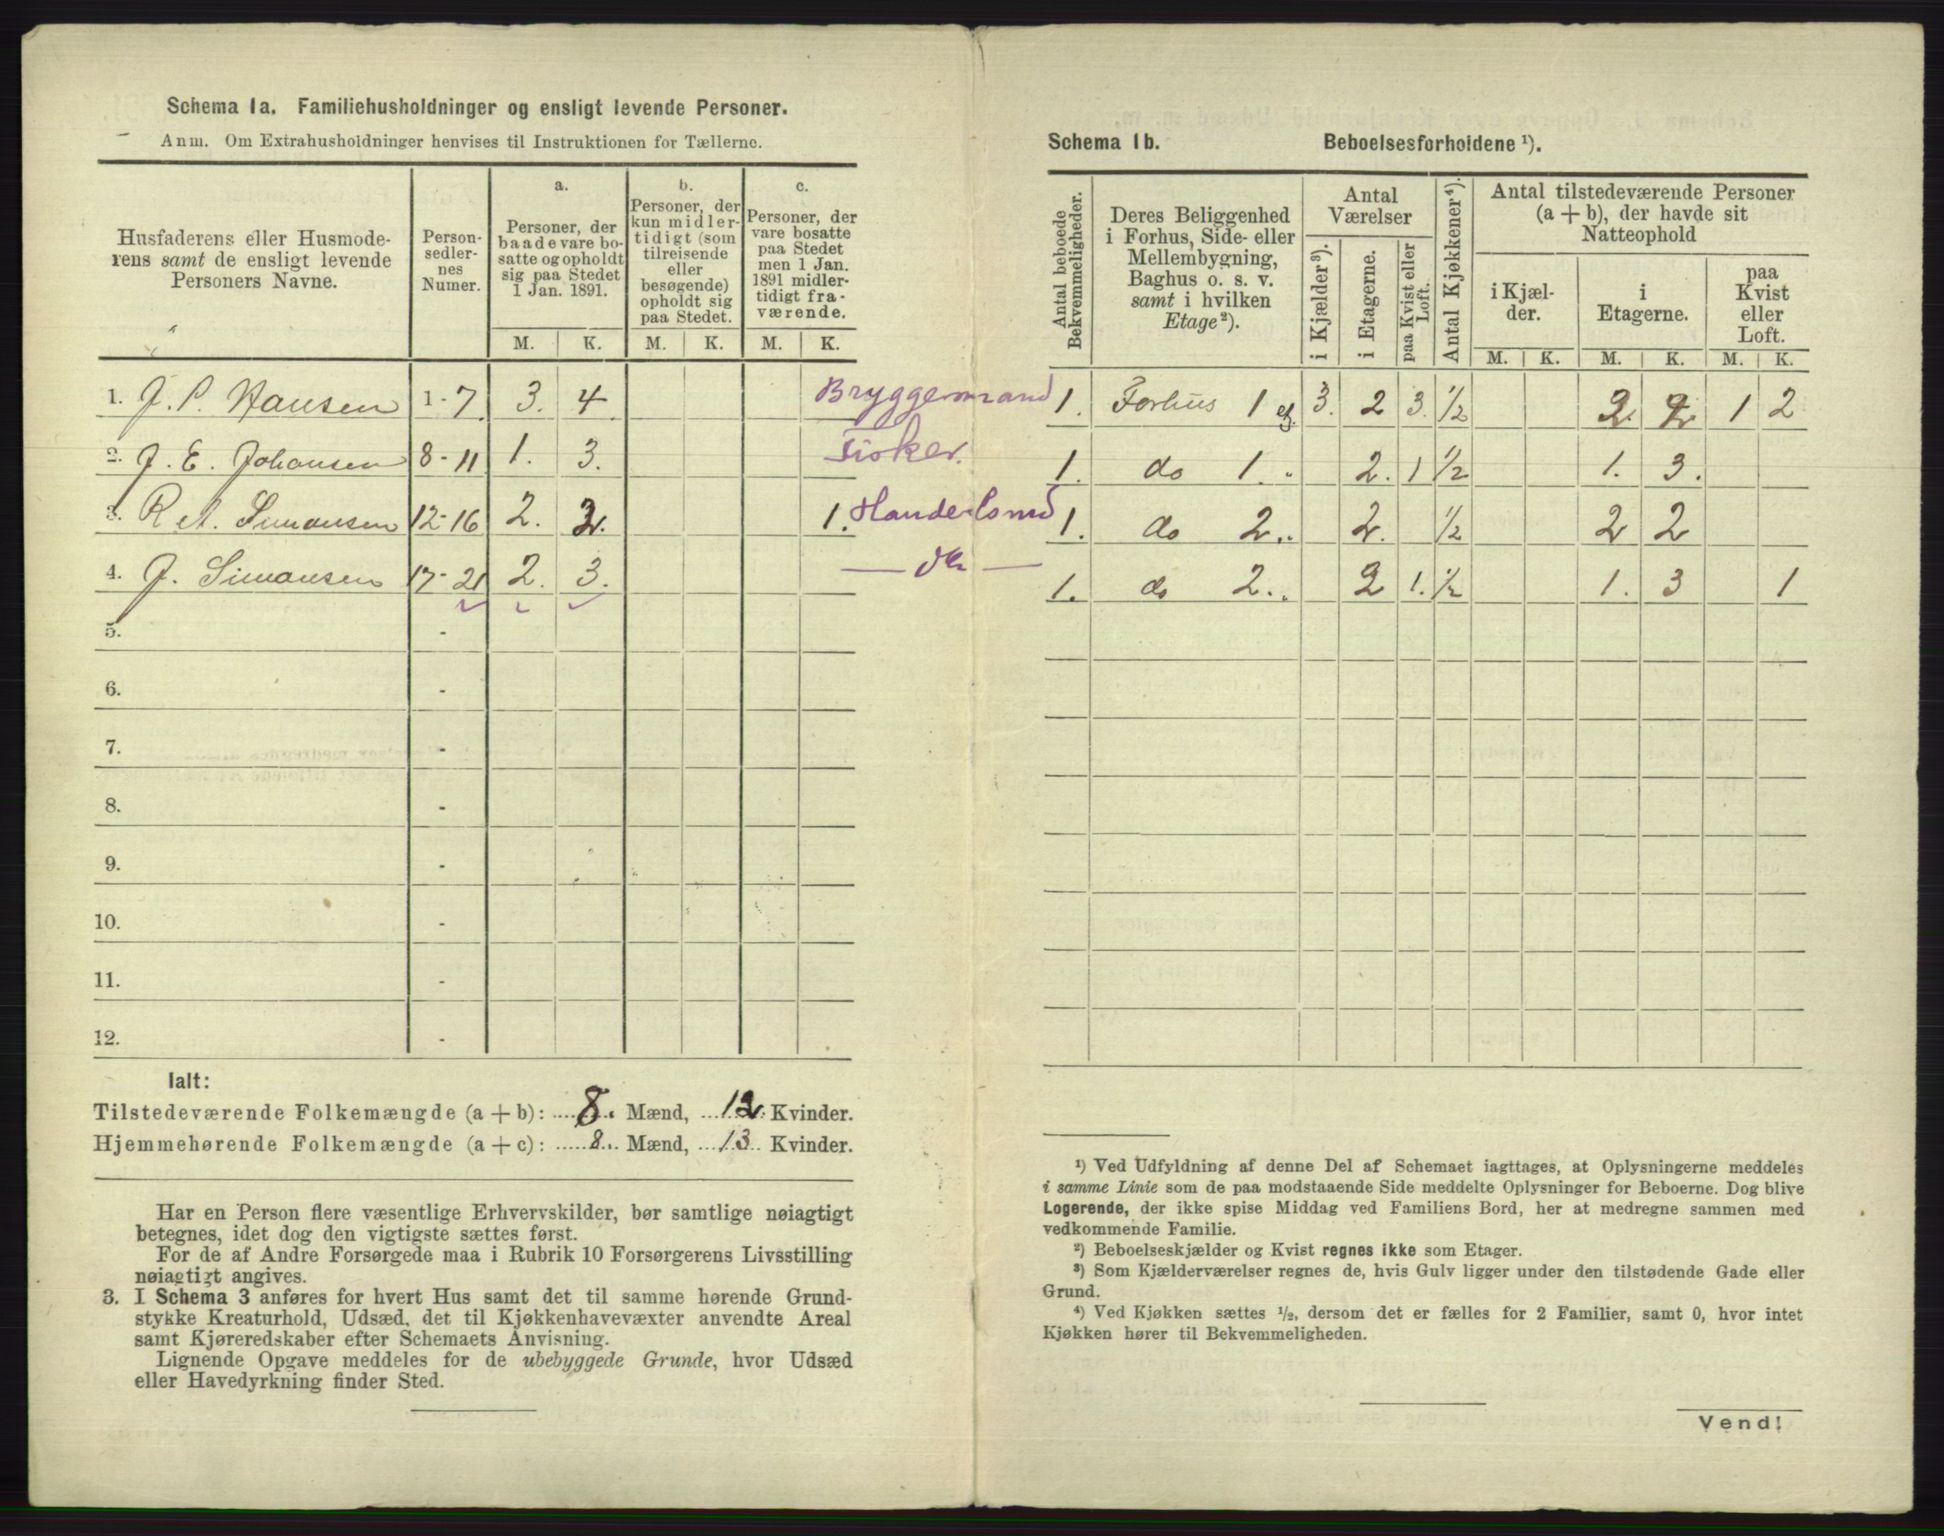 Schema 1a. Familiehusholdninger og ensligt levende Personer.
Anm. Om Extrahusholdninger henvises til Instruktionen for Tællerne.
Husfaderens eller Husmode-
rens samt de ensligt levende
Personers Navne.
Person-
sedler-
nes
Numer.
a.
Personer, der
baade vare bo-
satte og opholdt
sig paa Stedet
1 Jan. 1891.
b.
Personer, der
kun midler-
tidigt (som
tilreisende
eller
besøgende)
opholdt sig
paa Stedet.
c.
Personer, der
vare bosatte
paa Stedet
men 1 Jan.
1891 midler-
tidigt fra-
værende.
M. K. M. K. M. K.
1. J. P. Hansen 1-7 3. 4 Bryggemand
2. J. E. Johansen 8-11 1. 3. Fisker.
3. R A. Simonsen 12-16 2. 2. 1.
4. J. Simonsen 17-21 2. 3. do
5. -
6. -
7. -
8. -
9. -
10. -
11. -
12. -
Ialt:
Tilstedeværende Folkemængde (a + b): 8. Mænd, 12 Kvinder.
Hjemmehørende Folkemængde (a + c): 8. Mænd, 13 Kvinder.
Har en Person flere væsentlige Erhvervskilder, bør samtlige nøiagtigt
betegnes, idet dog den vigtigste sættes først.
For de af Andre Forsørgede maa i Rubrik 10 Forsørgerens Livsstilling
nøiagtigt angives.
3. I Schema 3 anføres for hvert Hus samt det til samme hørende Grund-
stykke Kreaturhold, Udsæd, det til Kjøkkenhavevæxter anvendte Areal
samt Kjøreredskaber efter Schemaets Anvisning.
Lignende Opgave meddeles for de ubebyggede Grunde, hvor Udsæd
eller Havedyrkning finder Sted.
Schema 1b. Beboelsesforholdene ¹).
Antal beboede
Bekvemmeligheder.
Deres Beliggenhed
i Forhus, Side- eller
Mellembygning,
Baghus o. s. v.
samt i hvilken
Etage²).
Antal
Værelser
i Kjælder³).
i Etagerne.
paa Kvist eller
Loft.
Antal Kjøkkener⁴).
Antal tilstedeværende Personer
(a + b), der havde sit
Natteophold
i Kjæl-
der.
i
Etagerne.
paa
Kvist
eller
Loft.
M. K. M. K. M. K.
1. Forhus 1 et. 3. 2 3. ½ 2. 2 1 2
1. do 1. „ 2. 1 ½ 1. 3.
1. do 2. „ 2. ½ 2 2
1. do 2. „ 2 1. ½ 1. 3 1
¹) Ved Udfyldning af denne Del af Schemaet iagttages, at Oplysningerne meddeles
i samme Linie som de paa modstaaende Side meddelte Oplysninger for Beboerne. Dog blive
Logerende, der ikke spise Middag ved Familiens Bord, her at medregne sammen med
vedkommende Familie.
²) Beboelseskjælder og Kvist regnes ikke som Etager.
³) Som Kjælderværelser regnes de, hvis Gulv ligger under den tilstødende Gade eller
Grund.
⁴) Ved Kjøkken sættes ½, dersom det er fælles for 2 Familier, samt 0, hvor intet
Kjøkken hører til Bekvemmeligheden.
Vend!